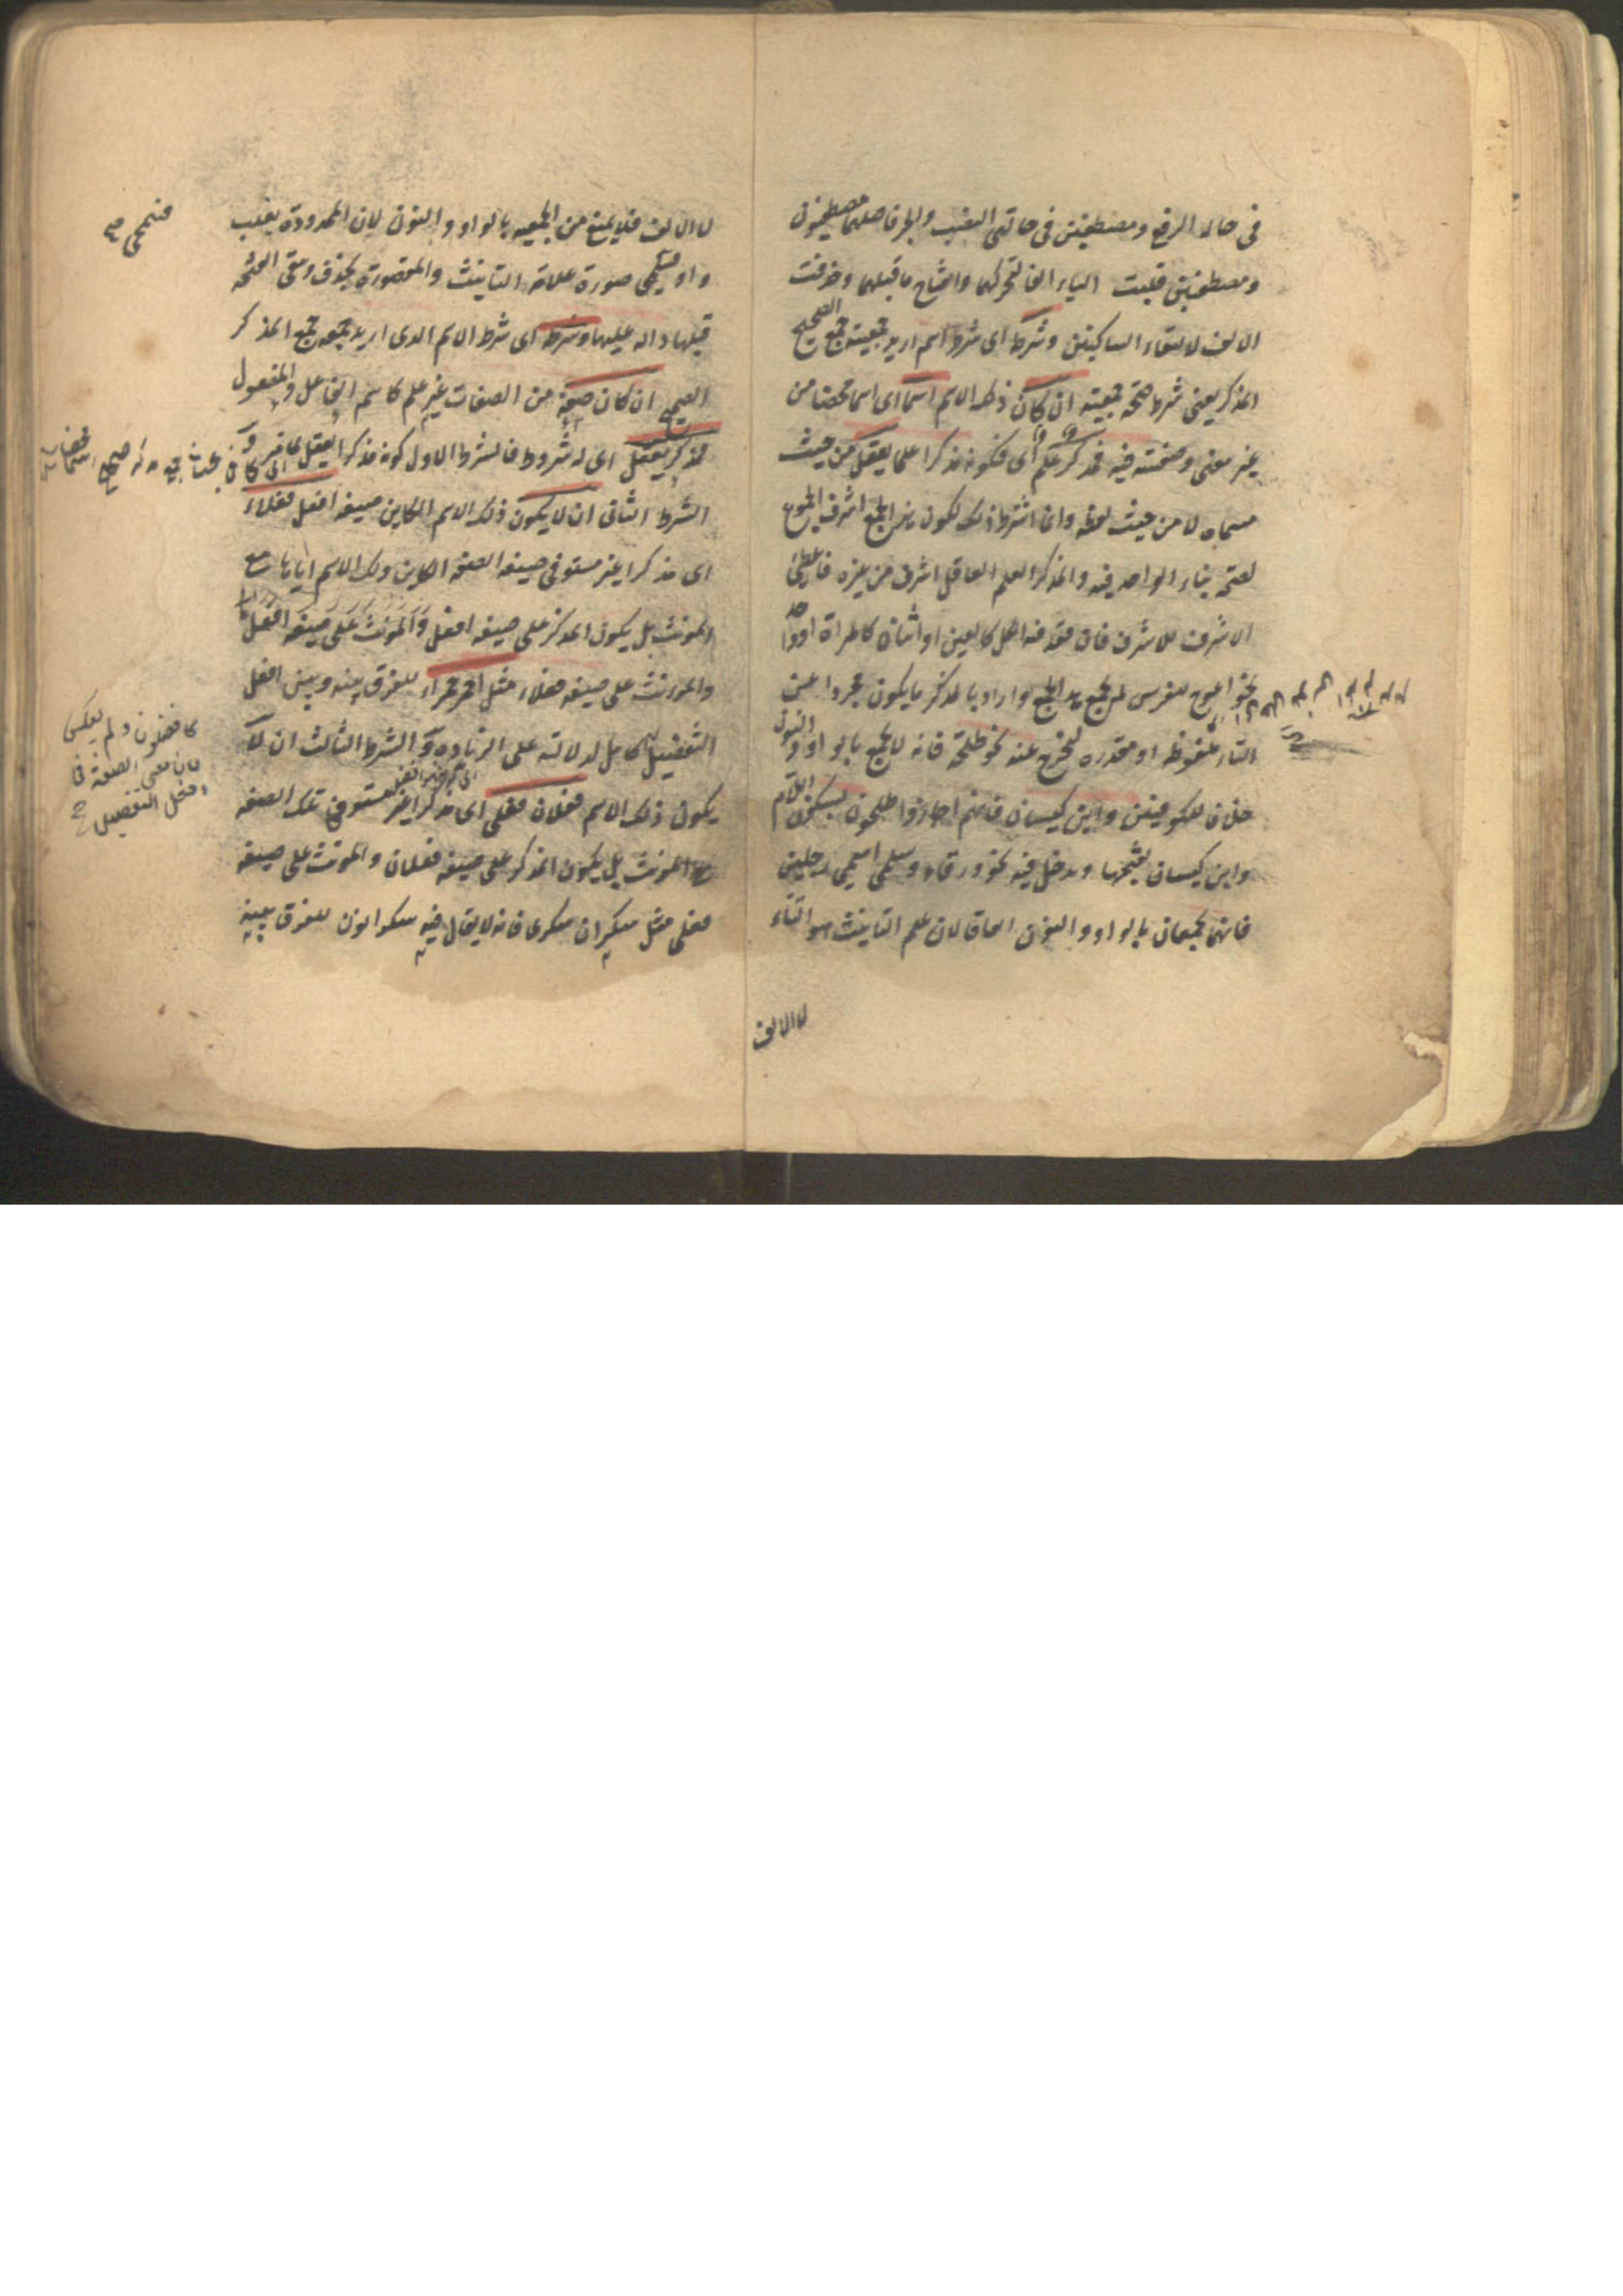 في حالة الرفع ومصطفين في حالتي النصب والجر فاصلهما مصطفيون
ومصطفيين قلبت الياء الفا لتحركها وانفتاح ما قبلها وحذفت
الالف لالتقاء الساكنين وشرطه اى شرط اسم اريد جمعيته جمع الصحيح
المذكر يعنى شرط صحة جمعيته ان كان ذلك الاسم اسما اى اسما محضا من
غير معنى وصفية فيه فمذكر علم اى فكونه مذكرا علما يعقل من حيث
مسماه لا من حيث لفظه وانما اشترط ذلك لكون هذا الجمع اشرف الجموع
لصحة بناء الواحد فيه والمذكر العلم العاقل اشرف من غيره فاعطى
الاشرف للاشرف فان فقد فيه الكل كالعين او اثنان كالمراة او واحد
نحو اعوج للفرس لم يجمع هذا الجمع واراد بالمذكر ما يكون مجردا عن
التاء ملفوظة او مقدرة ليخرج عنه نحو طلحة فانه لا يجمع بالواو والنون
خلافا للكوفيين وابن كيسان فانهم اجازوا طلحون بسكون اللام
وابن كيسان بفتحها ويدخل فيه نحو ورقاء وسلمى اسمى رجلين
فانهما يجمعان بالواو والنون اتفاقا لان علم التانيث هو التاء
لا الالف
لا الالف فلا يمنع من الجمعية بالواو والنون لان الممدودة يقلب
واوا فينمحى صورة علامة التانيث والمقصورة يحذف وتبقى الفتحة
قبلها دالة عليها وشرطه اى شرط الاسم الذى اريد جمعه جمع المذكر
الصحيح ان كان صفة من الصفات غير علم كاسم الفاعل والمفعول
فمذكر يعقل اى له شروط فالشرط الاول كونه مذكرا يعقل لما مر و
الشرط الثانى ان لا يكون ذلك الاسم الكاين صيغة افعل فعلاء
اى مذكرا غير مستو في صيغة الصفة الكاين ذلك الاسم اياها مع
المونث بل يكون المذكر على صيغة افعل والمونث على صيغة افعل
والمونث على صيغة فعلاء مثل احمر حمراء للفرق بينه وبين افعل
التفضيل كامل لدلالته على الزيادة و الشرط الثالث ان لا
يكون ذلك الاسم فعلان فعلى اى مذكرا غير مستو في تلك الصفة
مع المونث بل يكون المذكر على صيغة فعلان والمونث على صيغة
فعلى مثل سكران سكرى فانه لا يقال فيه سكرانون للفرق بينه
فينمحى
كافضلون ولم يعكس
لان معنى الصفة فى
افعل التفضيل